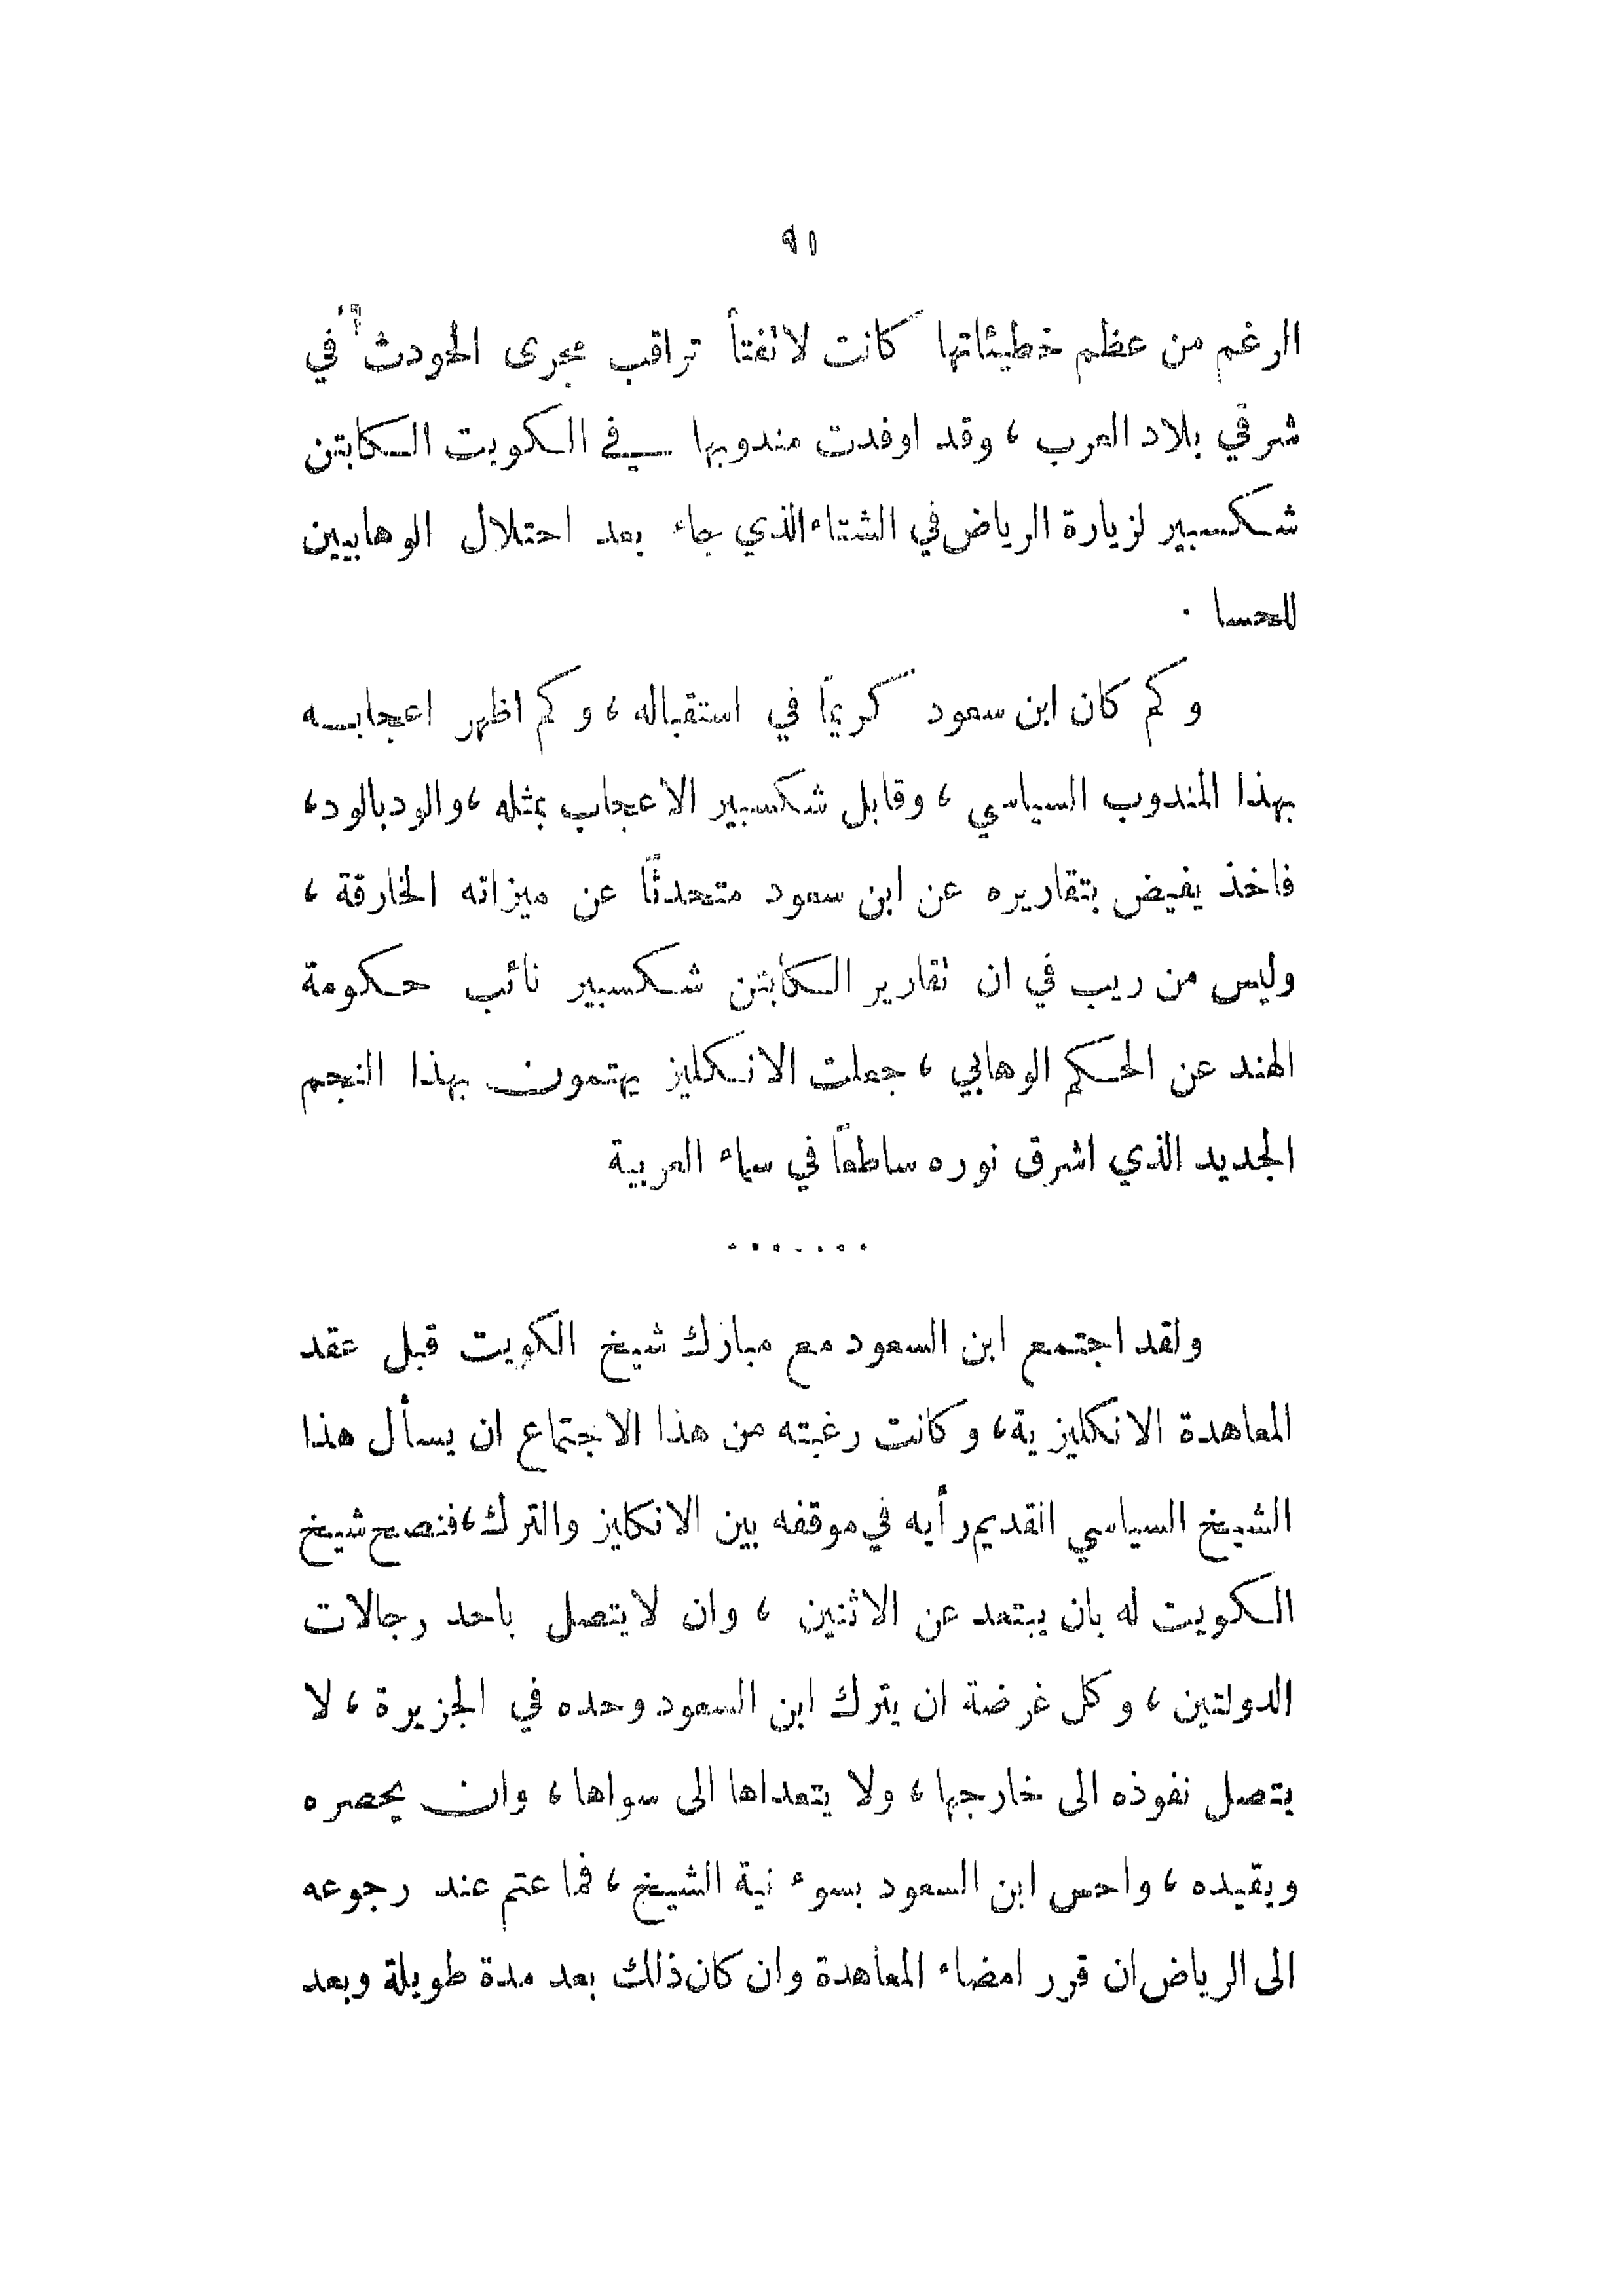 ٩١
الرغم من عظم خطيئاتها كانت لاتفتأ تراقب مجرى الحودث في
شرقي بلاد العرب ، وقد اوفدت مندوبها في الكويت الكابتن
شكسبير لزيارة الرياض في الشتاء الذي جاء بعد احتلال الوهابيين
للحسا .
وكم كان ابن سعود كريماً في استقباله ، وكم اظهر اعجابه
بهذا المندوب السياسي ، وقابل شكسبير الاعجاب بمثله ، والود بالود ،
فاخذ يفيض بتقاريره عن ابن سعود متحدثاً عن ميزاته الخارقة ،
وليس من ريب في ان تقارير الكابتن شكسبير نائب حكومة
الهند عن الحكم الوهابي ، جعلت الانكليز يهتمون بهذا النجم
الجديد الذي اشرق نوره ساطعاً في سماء العربية
.......
ولقد اجتمع ابن السعود مع مبارك شيخ الكويت قبل عقد
المعاهدة الانكليزية ، وكانت رغبته من هذا الاجتماع ان يسأل هذا
الشيخ السياسي القديم رأيه في موقفه بين الانكليز والترك ، فنصح شيخ
الكويت له بان يبتعد عن الاثنين ، وان لايتصل باحد رجالات
الدولتين ، وكل غرضة ان يترك ابن السعود وحده في الجزيرة ، لا
يتصل نفوذه الى خارجها ، ولا يتعداها الى سواها ، وان يحصره
ويقيده ، واحس ابن السعود بسوء نية الشيخ ، فما عتم عند رجوعه
الى الرياض ان قرر امضاء المعاهدة وان كان ذلك بعد مدة طويلة وبعد